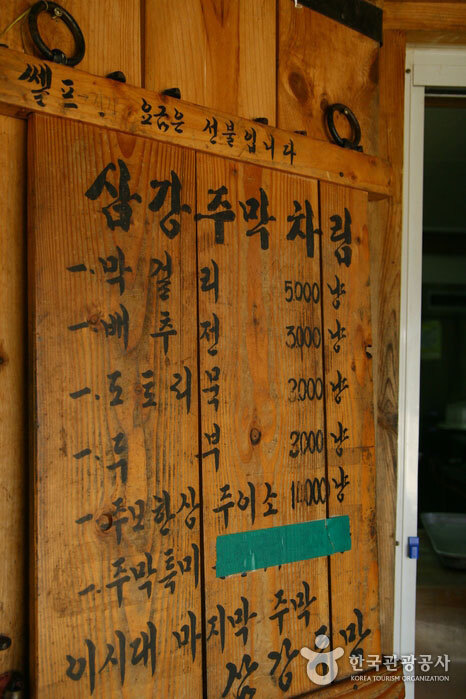 쎌프. 요금은 선불입니다
삼강주막 차림
-. 막걸리 5,000냥
-. 배추전 3,000냥
-. 도토리묵 3,000냥
-. 두부 3,000냥
-. 주모한상 주이소 냥
-. 주막특미
이시대 마지막 주막
삼강주막
한국관광공사
KOREA TOURISM ORGANIZATION